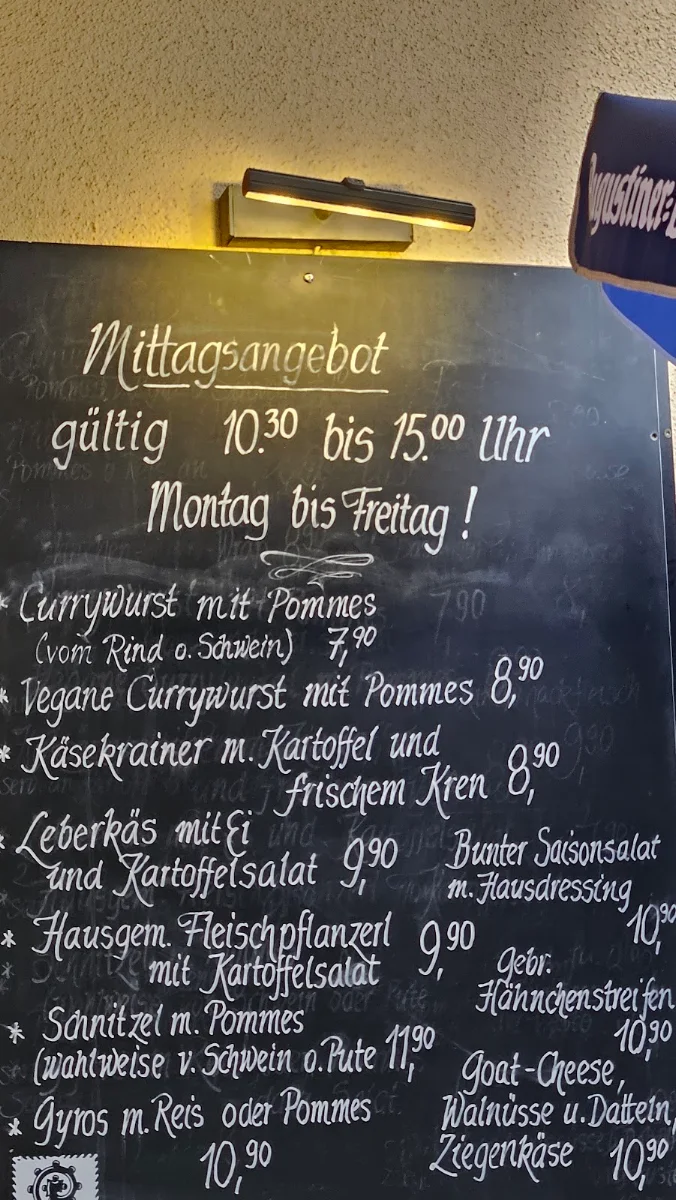 Augustiner
Mittagsangebot
gültig 10.30 bis 15.00 Uhr
Montag bis Freitag !
* Currywurst mit Pommes
(vom Rind o. Schwein) 7,90
* Vegane Currywurst mit Pommes 8,90
* Käsekrainer m. Kartoffel und
frischem Kren 8,90
* Leberkäs mit Ei
und Kartoffelsalat 9,90
* Hausgem. Fleischpflanzerl 9,90
mit Kartoffelsalat
* Schnitzel m. Pommes
(wahlweise v. Schwein o. Pute 11,90
* Gyros m. Reis oder Pommes
10,90
Bunter Saisonsalat
m. Hausdressing
10,90
Gebr.
Hähnchenstreifen
10,90
Goat-Cheese,
Walnüsse u. Datteln,
Ziegenkäse 10,90